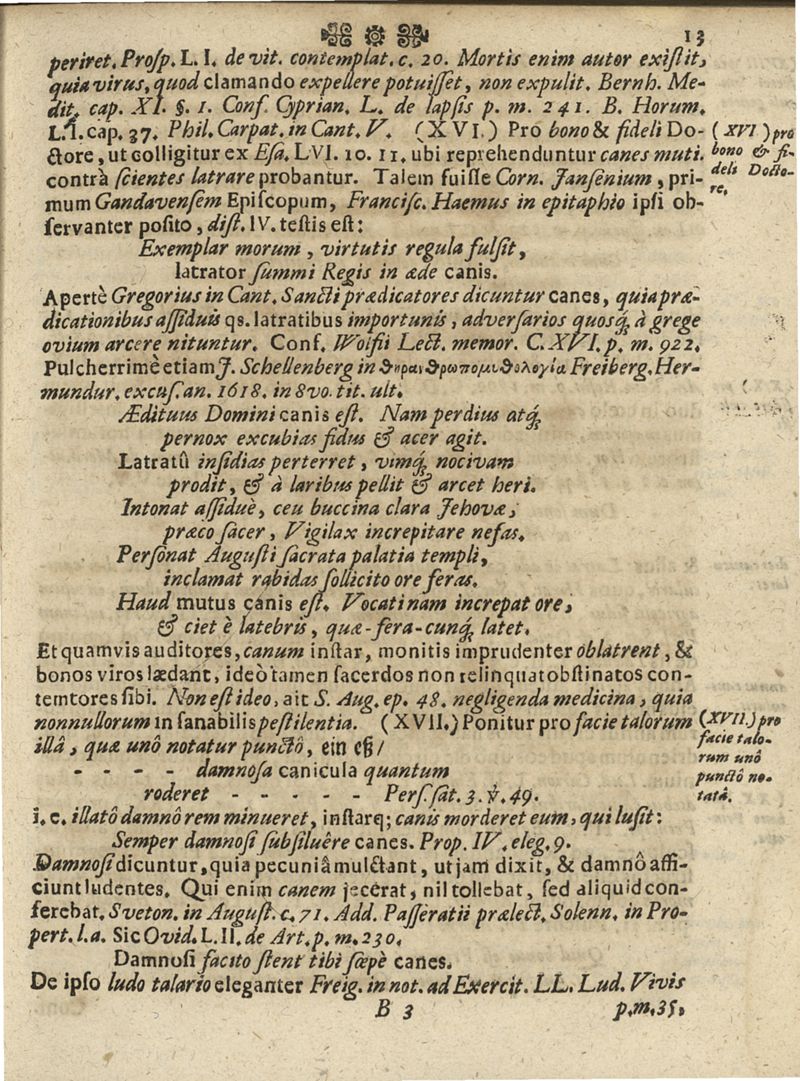 13
periret. Proſp. L. I. de vit. contemplat. c. 20. Mortis enim autor exiſtit,
quia virus, quod clamando expellere potuiſſet, non expulit. Bernh. Me-
dit. cap. XI. §. 1. Conf. Cyprian. L. de lapſis p. m. 241. B. Horum.
L. I. cap. 37. Phil. Carpat. in Cant. V. (XVI.) Pro bono & fideli Do-
ctore, ut colligitur ex Eſa. LVI. 10. 11. ubi reprehenduntur canes muti.
contrà ſcientes latrare probantur. Talem fuiſſe Corn. Janſenium, pri-
mum Gandavenſem Epiſcopum, Franciſc. Haemus in epitaphio ipſi ob-
ſervanter poſito, diſt. IV. teſtis eſt:
(XVI) pro
bono & fi-
deli Docto-
re.
Exemplar morum, virtutis regula fulſit,
latrator ſummi Regis in æde canis.
Apertè Gregorius in Cant. Sancti prædicatores dicuntur canes, quia præ-
dicationibus aſſiduis qs. latratibus importunis, adverſarios quosq́; à grege
ovium arcere nituntur. Conf. Wolfii Lect. memor. C. XVI. p. m. 922.
Pulcherrimè etiam J. Schellenberg in θηρανθρωπομυθολογία Freiberg. Her-
mundur. excuſ. an. 1618. in 8vo. tit. ult.
Ædituus Domini canis eſt. Nam perdius atq́;
pernox excubias fidus & acer agit.
Latratû inſidias perterret, vimq́; nocivam
prodit, & à laribus pellit & arcet heri.
Intonat aſſiduè, ceu buccina clara Jehovæ,
præco ſacer, Vigilax increpitare nefas.
Perſonat Auguſti ſacrata palatia templi,
inclamat rabidas ſollicito ore feras.
Haud mutus canis eſt. Vocati nam increpat ore,
& ciet è latebris, quæ-fera-cunq́; latet.
Et quamvis auditores, canum inſtar, monitis imprudenter oblatrent, &
bonos viros lædant, ideò tamen ſacerdos non relinquat obſtinatos con-
temtores ſibi. Non eſt ideo, ait S. Aug. ep. 48. negligenda medicina, quia
nonnullorum inſanabilis peſtilentia. (XVII.) Ponitur pro facie talorum
illâ, quæ unô notatur punctô, ein eß/
(XVII.) pro
facie talo-
rum unô
punctô no-
tatâ.
- - - - damnoſa canicula quantum
roderet - - - - - Perſ. ſat. 3. v. 49.
i. e. illatô damnô rem minueret, inſtarq; canis morderet eum, qui luſit:
Semper damnoſi ſubſiluêre canes. Prop. IV. eleg. 9.
Damnoſi dicuntur, quia pecuniâ mulctant, ut jam dixit, & damnô affi-
ciunt ludentes. Qui enim canem jecerat, nil tollebat, ſed aliquid con-
ferebat. Sveton. in Auguſt. c. 71. Add. Paſſeratii prælect. Solenn. in Pro-
pert. l. a. Sic Ovid. L. II. de Art. p. m. 230.
Damnoſi facito ſtent tibi ſæpè canes.
De ipſo ludo talario eleganter Freig. in not. ad Exercit. LL. Lud. Vivis
B 3 p. m. 35.